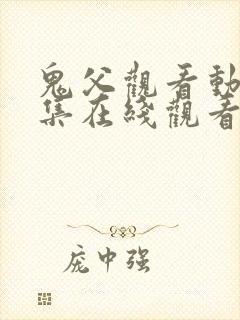 鬼父觀看動
集在綫觀看
庞中强